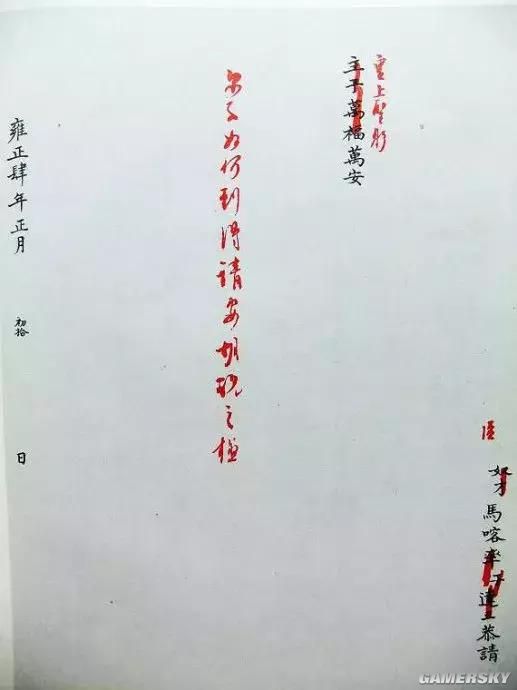 臣
奴才馬喀率子達恭請
皇上聖躬
主子萬福萬安
尔子如何到得請安胡說之極
雍正肆年正月初拾日
GAMERSKY